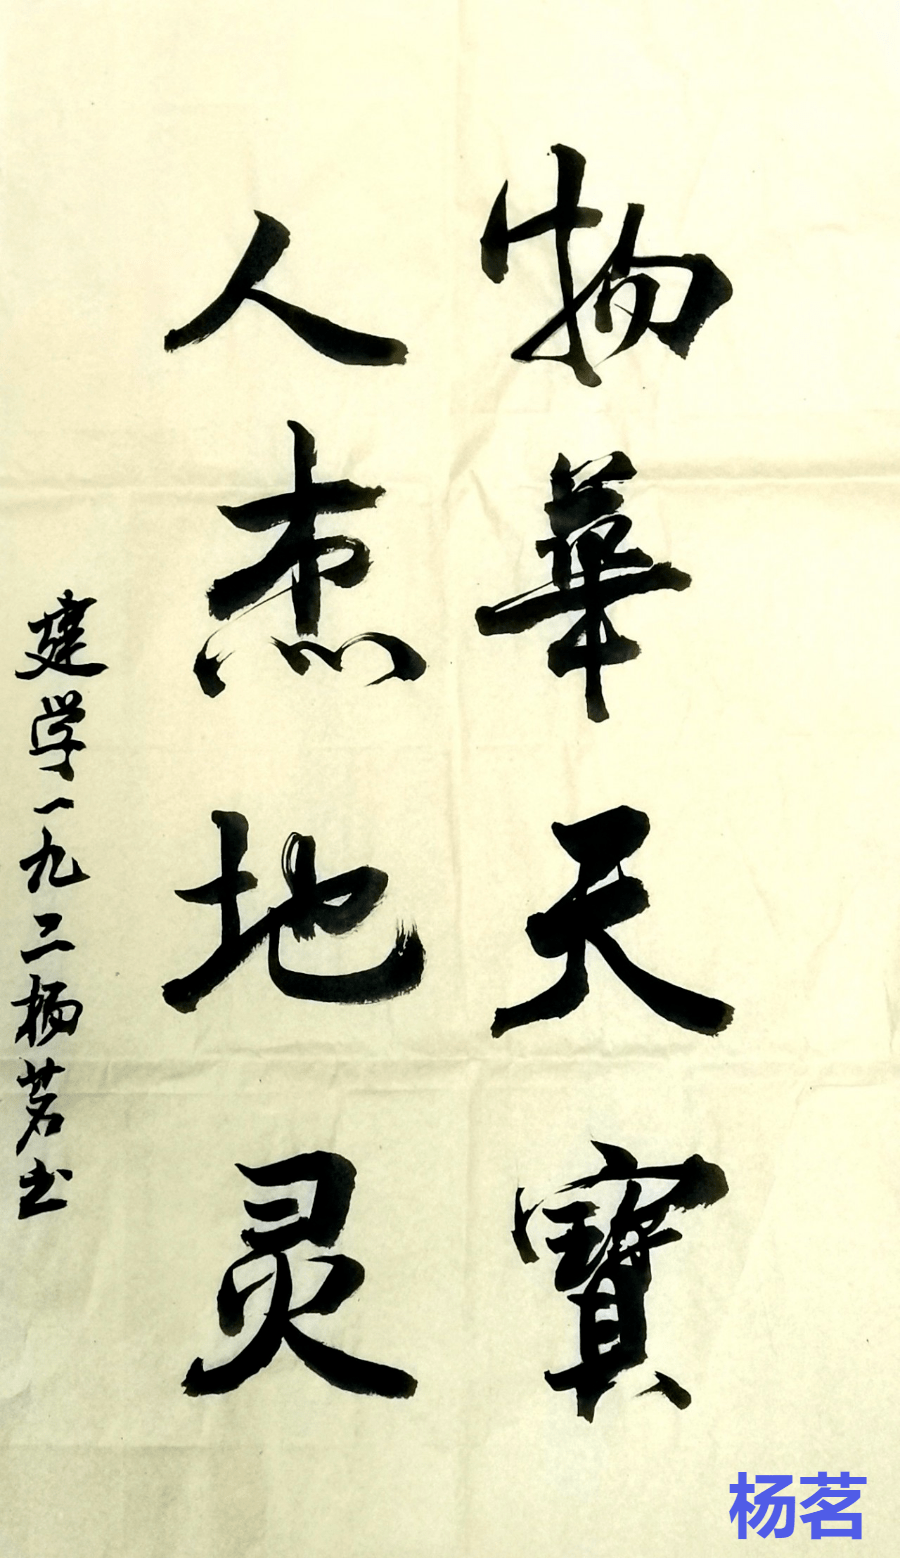 物華天寳
人杰地灵
建学一九二杨茗书
杨茗